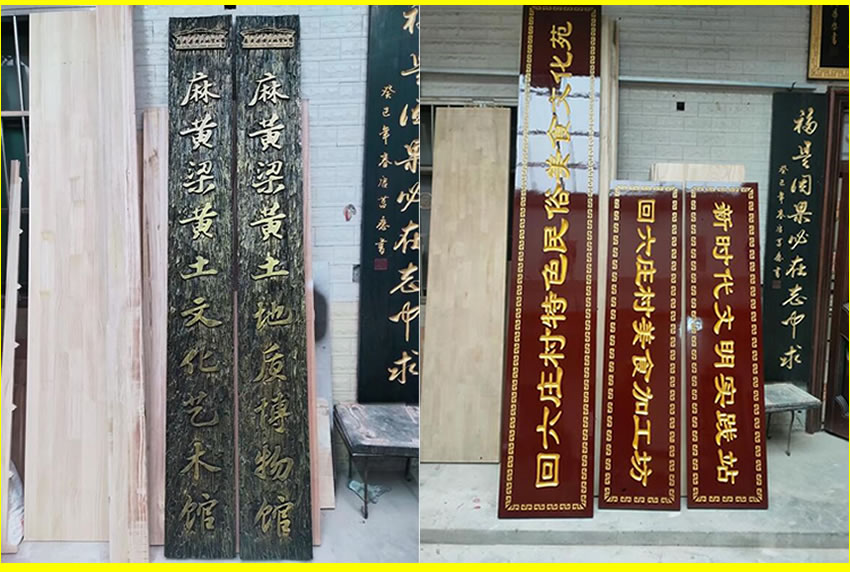 麻黄梁黄土文化艺术馆
麻黄梁黄土地质博物馆
福是因果必在志中求
癸巳年春
书
回六庄村特色民俗美食文化苑
回六庄村美食加工坊
新时代文明实践站
福是因果必在志中求
癸巳年春
书